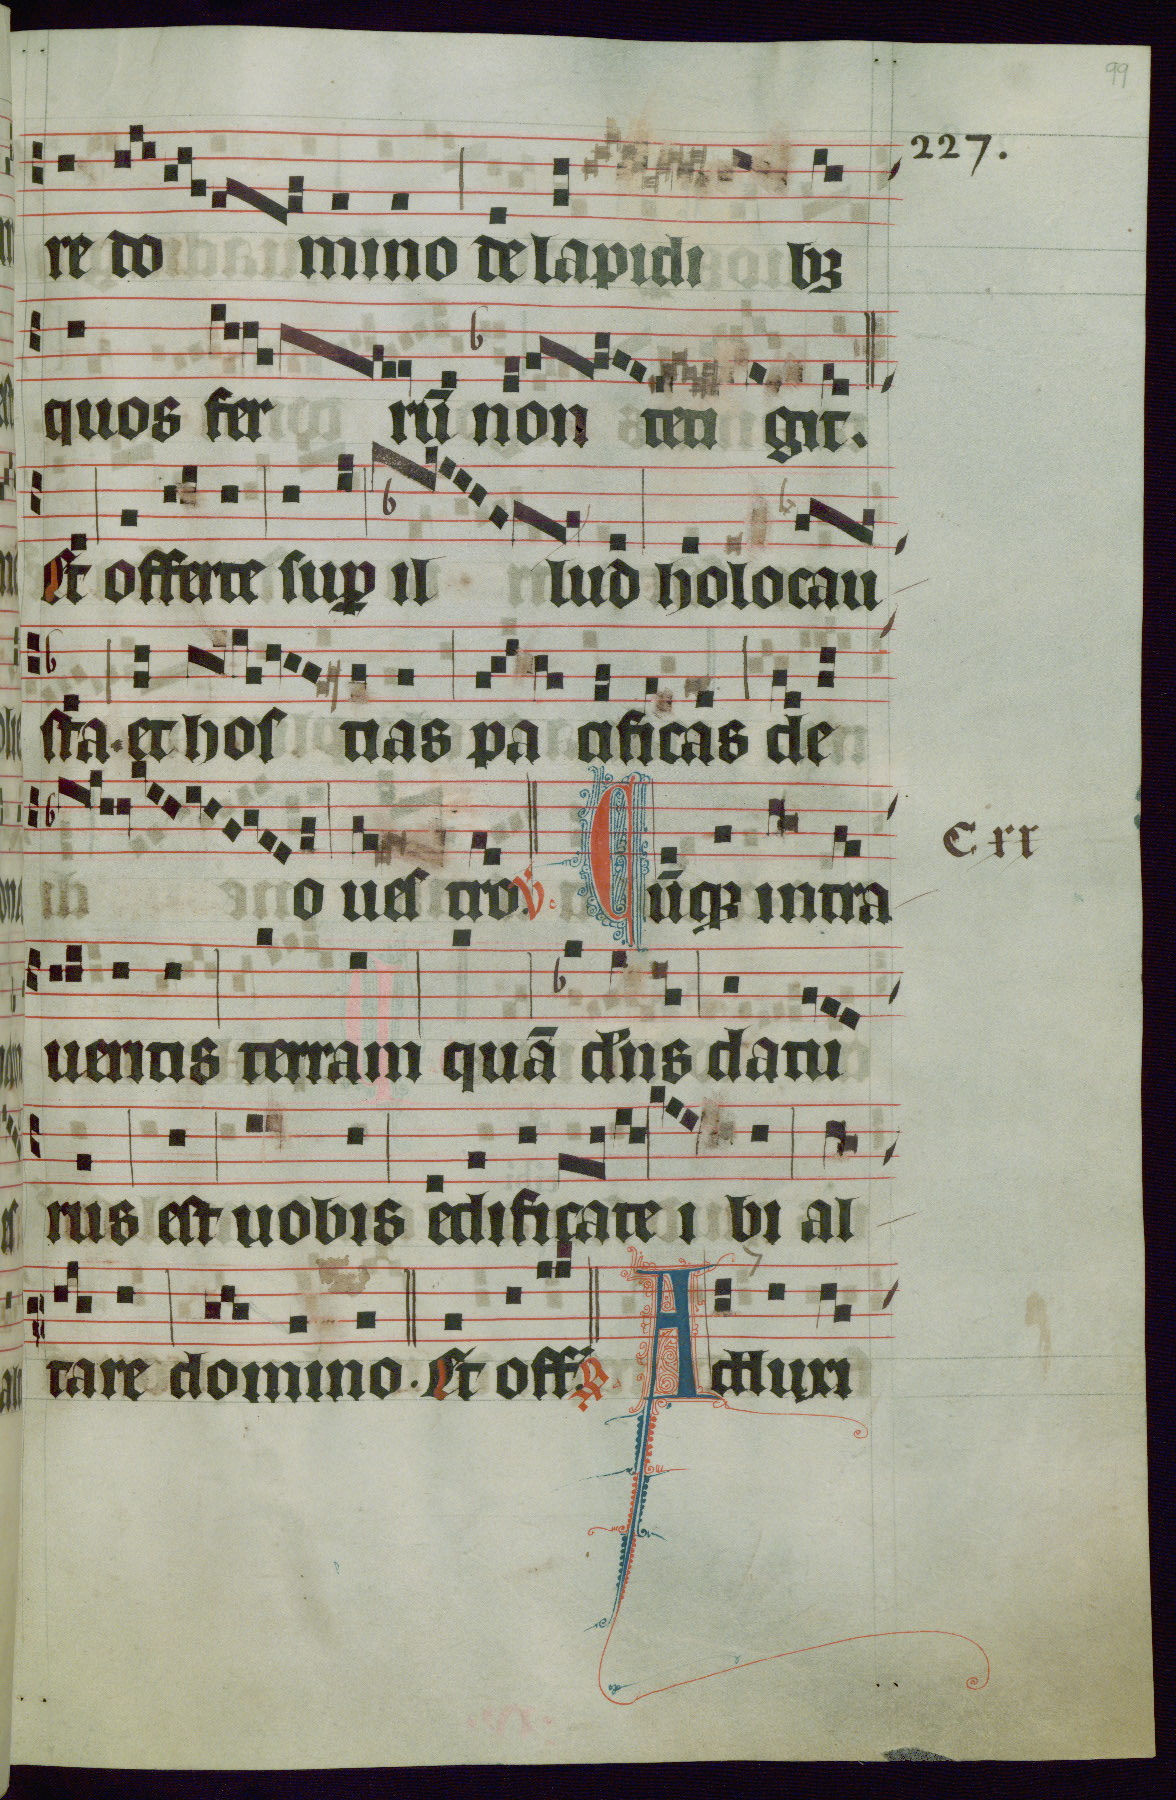 99
227.
re do mino de lapidi bꝫ
quos fer rū non teti git.
Et offerte suꝑ il lud holocau
sta. et hos tias pa cificas de
o ues tro. ℣. Cūqꝫ intra
Cxx
ueritis terram quā dns datu
rus est uobis edificate i bi al
tare domino. Et off. ℟. Adduxi